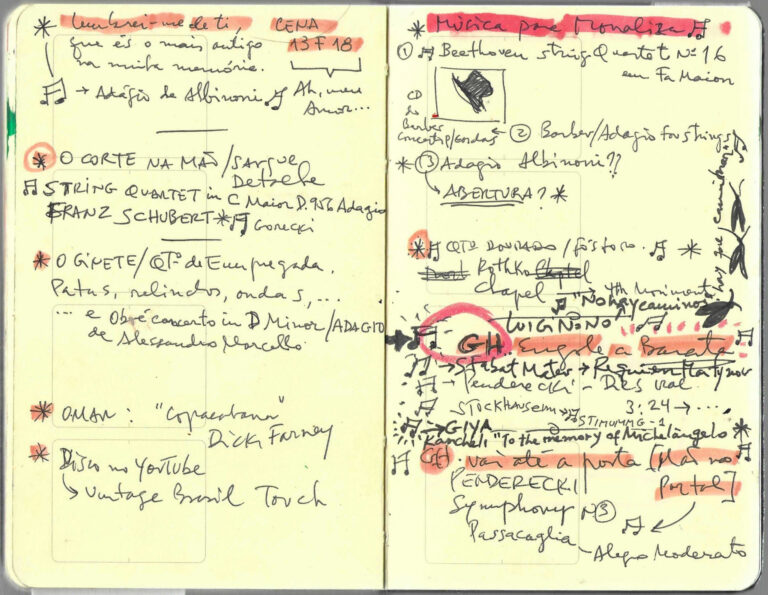 * Lembrei-me de ti,
que és o mais antigo
na minha memória.
CENA
13 F 18
→ Adágio de Albinoni
Ah, meu
Amor...
* O CORTE NA MÃO/SANGUE
Detalhe
STRING QUARTET in C Maior D.956 Adagio
FRANZ SCHUBERT * Gorecki
* O GINETE/QTº de Empregada.
Patas, relinchos, ondas,...
... e Oboé concerto in D Minor/ADAGIO
de Alessandro Marcello
* OMAR: "Copacabana"
Dick Farney
* Disco no YouTube
↳ Vintage Brasil Touch
* Música para Monaliza
① Beethoven string Quartet Nº 16
em Fa Maior
CD
do
Barber
② Barber/Adagio for strings
* ③ Adagio Albinoni??
↳ ABERTURA? *
* QTO DOURADO/fósforo. *
Rothko Chapel
Chapel
4th Movimento
"No hay caminos
LUIGI NONO
→ GH Engole a Barata
→ Stabat Mater → Requiem
→ Penderecki - Dies irae.
STOCKHAUSEN → STIMUMMG-1
3:24 → ...
→ GIYA
Kancheli "To the memory of Michelângelo *
GH. vai até a porta [Mão no
Portal]
PENDERECKI
Symphony Nº 3
Passacaglia
Alegro Moderato